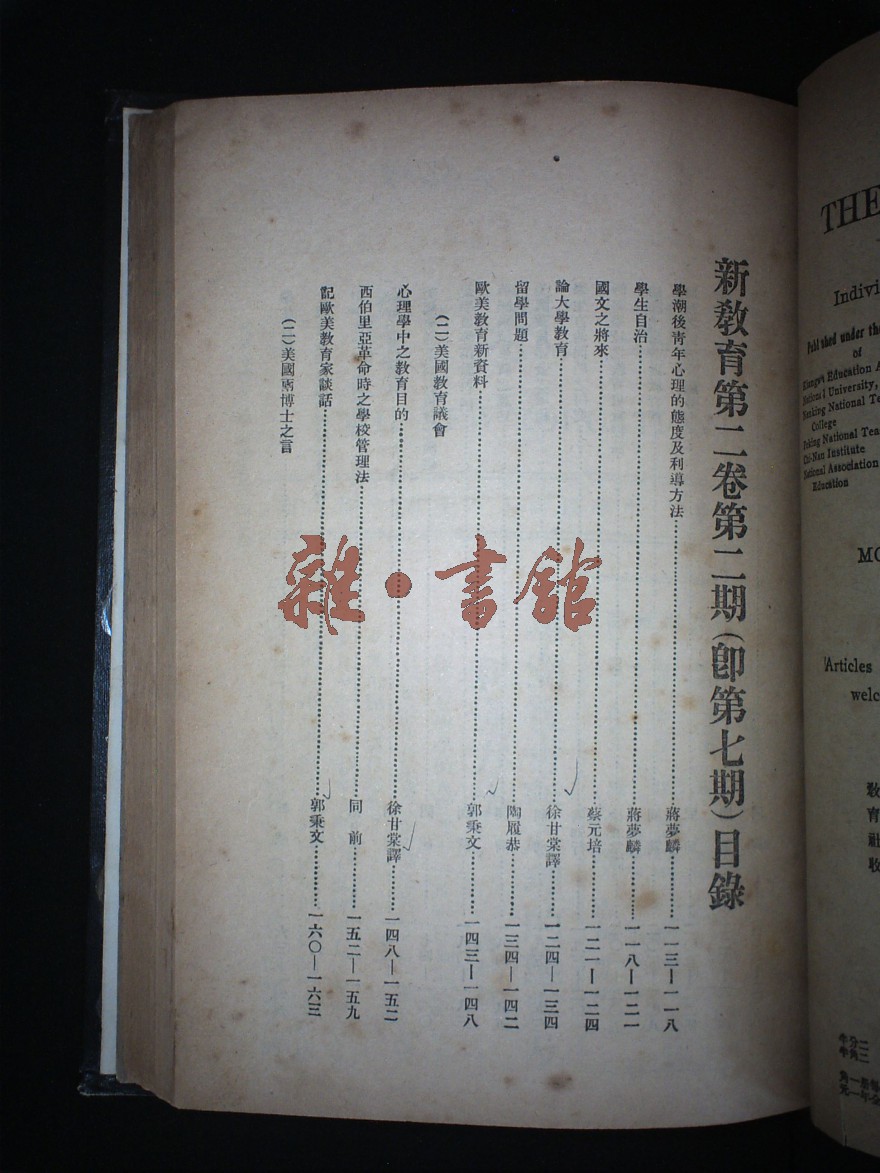 新敎育第二卷第二期(卽第七期)目錄
學潮後靑年心理的態度及利導方法 蔣夢麟 一一三—一一八
學生自治 蔣夢麟 一一八—一二一
國文之將來 蔡元培 一二一—一二四
論大學敎育 徐甘棠譯 一二四—一三四
留學問題 陶履恭 一三四—一四二
歐美敎育新資料 郭秉文 一四三—一四八
(二)美國敎育議會
心理學中之敎育目的 徐甘棠譯 一四八—一五二
西伯里亞革命時之學校管理法 同前 一五二—一五九
記歐美敎育家談話 郭秉文 一六〇—一六三
(二)美國兩博士之言
雜·書館
THE
Indivi
Published under the
of
Kiangsu Education A
National University,
Nanking National Te
College
Peking National Tea
Chi-Nan Institute
National Association
Education
MO
Articles
welc
敎育社收